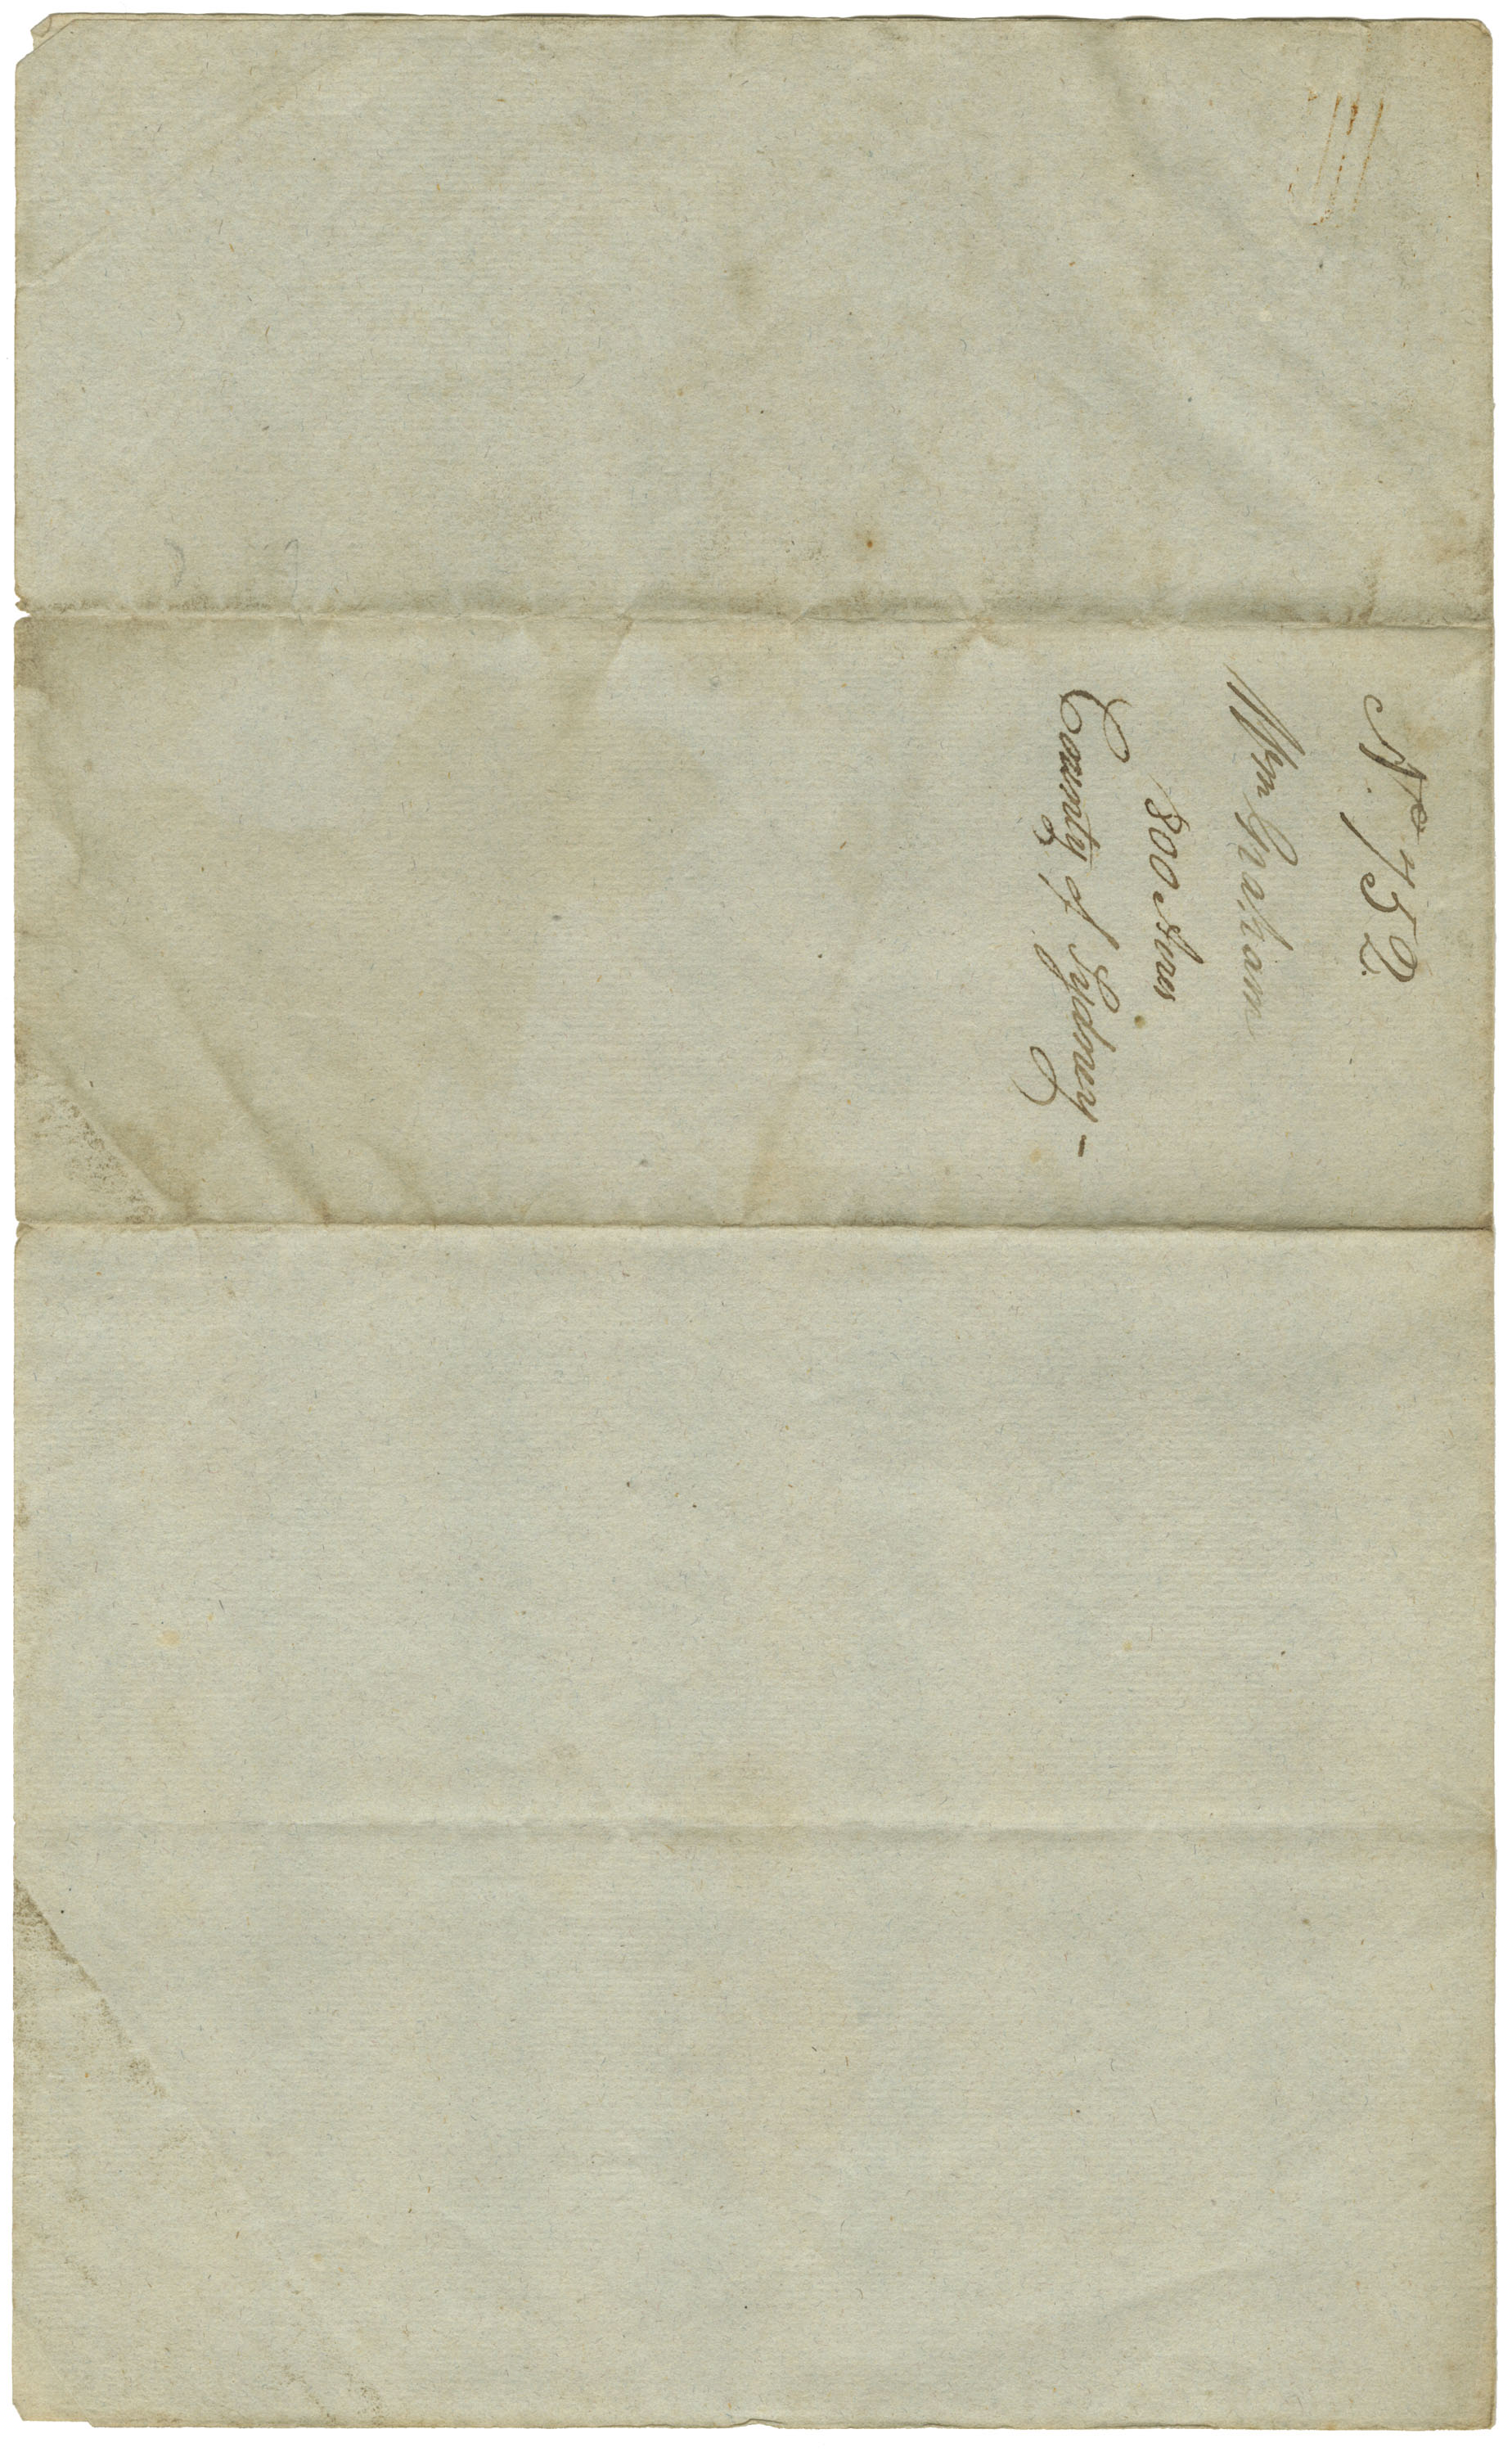 No. 752.
Wm Graham
300 Acres
County of Sydney -